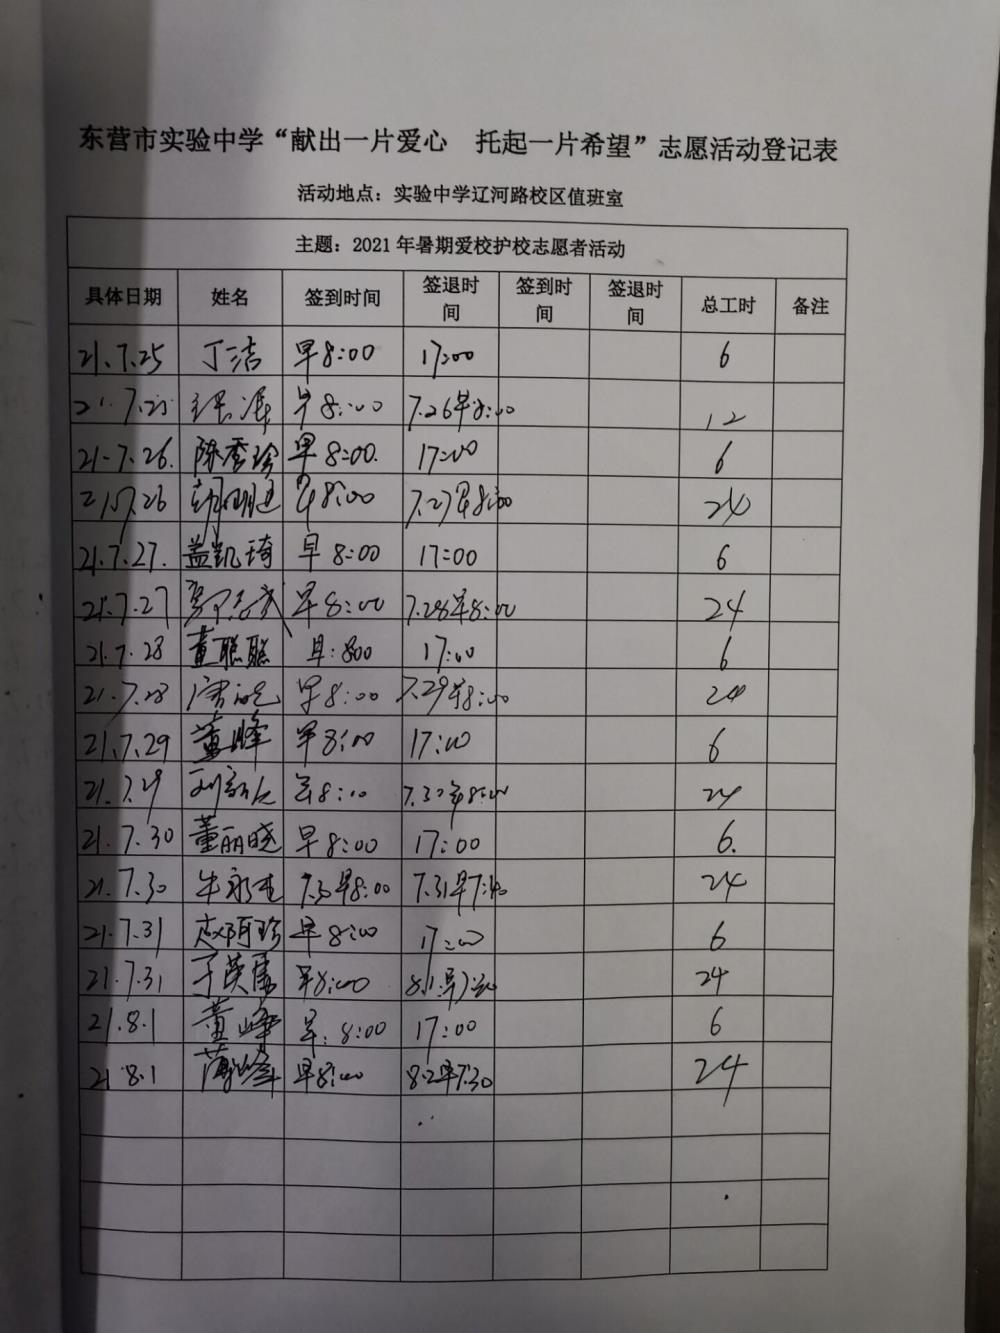 东营市实验中学“献出一片爱心 托起一片希望”志愿活动登记表
活动地点：实验中学辽河路校区值班室
主题：2021年暑期爱校护校志愿者活动
具体日期 姓名 签到时间 签退时间 签到时间 签退时间 总工时 备注
21.7.25 丁洁 早8:00 17:00 6
21.7.25 早8:00 7.26早8:00 12
21.7.26. 陈秀珍 早8:00. 17:00 6
21.7.26 早8:00 7.27早8:00 24
21.7.27. 盖凯琦 早8:00 17:00 6
21.7.27 早8:00 7.28早8:00 24
21.7.28 董聪聪 早:800 17:00 6
21.7.28 早8:00 7.29早8:00 24
21.7.29 董峰 早8:00 17:00 6
21.7.29 早8:00 7.30早8:00 24
21.7.30 董丽晓 早8:00 17:00 6.
21.7.30 7.30早8:00 7.31早7:40 24
21.7.31 赵阿珍 早8:00 17:00 6
21.7.31 早8:00 24
21.8.1 董峰 早:8:00 17:00 6
21.8.1 早8:00 8.2早7:30 24